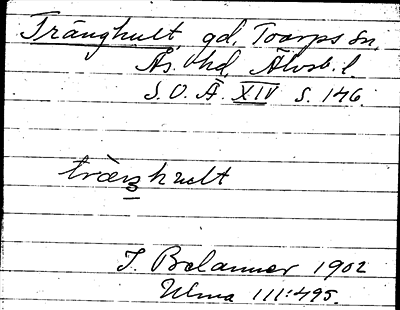 Trånghult, gd, Toarps sn,
Ås hd, Älvsb. l.
S. O. Ä. XIV s. 146.
trò̀ŋhult
I. Belanner 1902
Ulma 111:495.